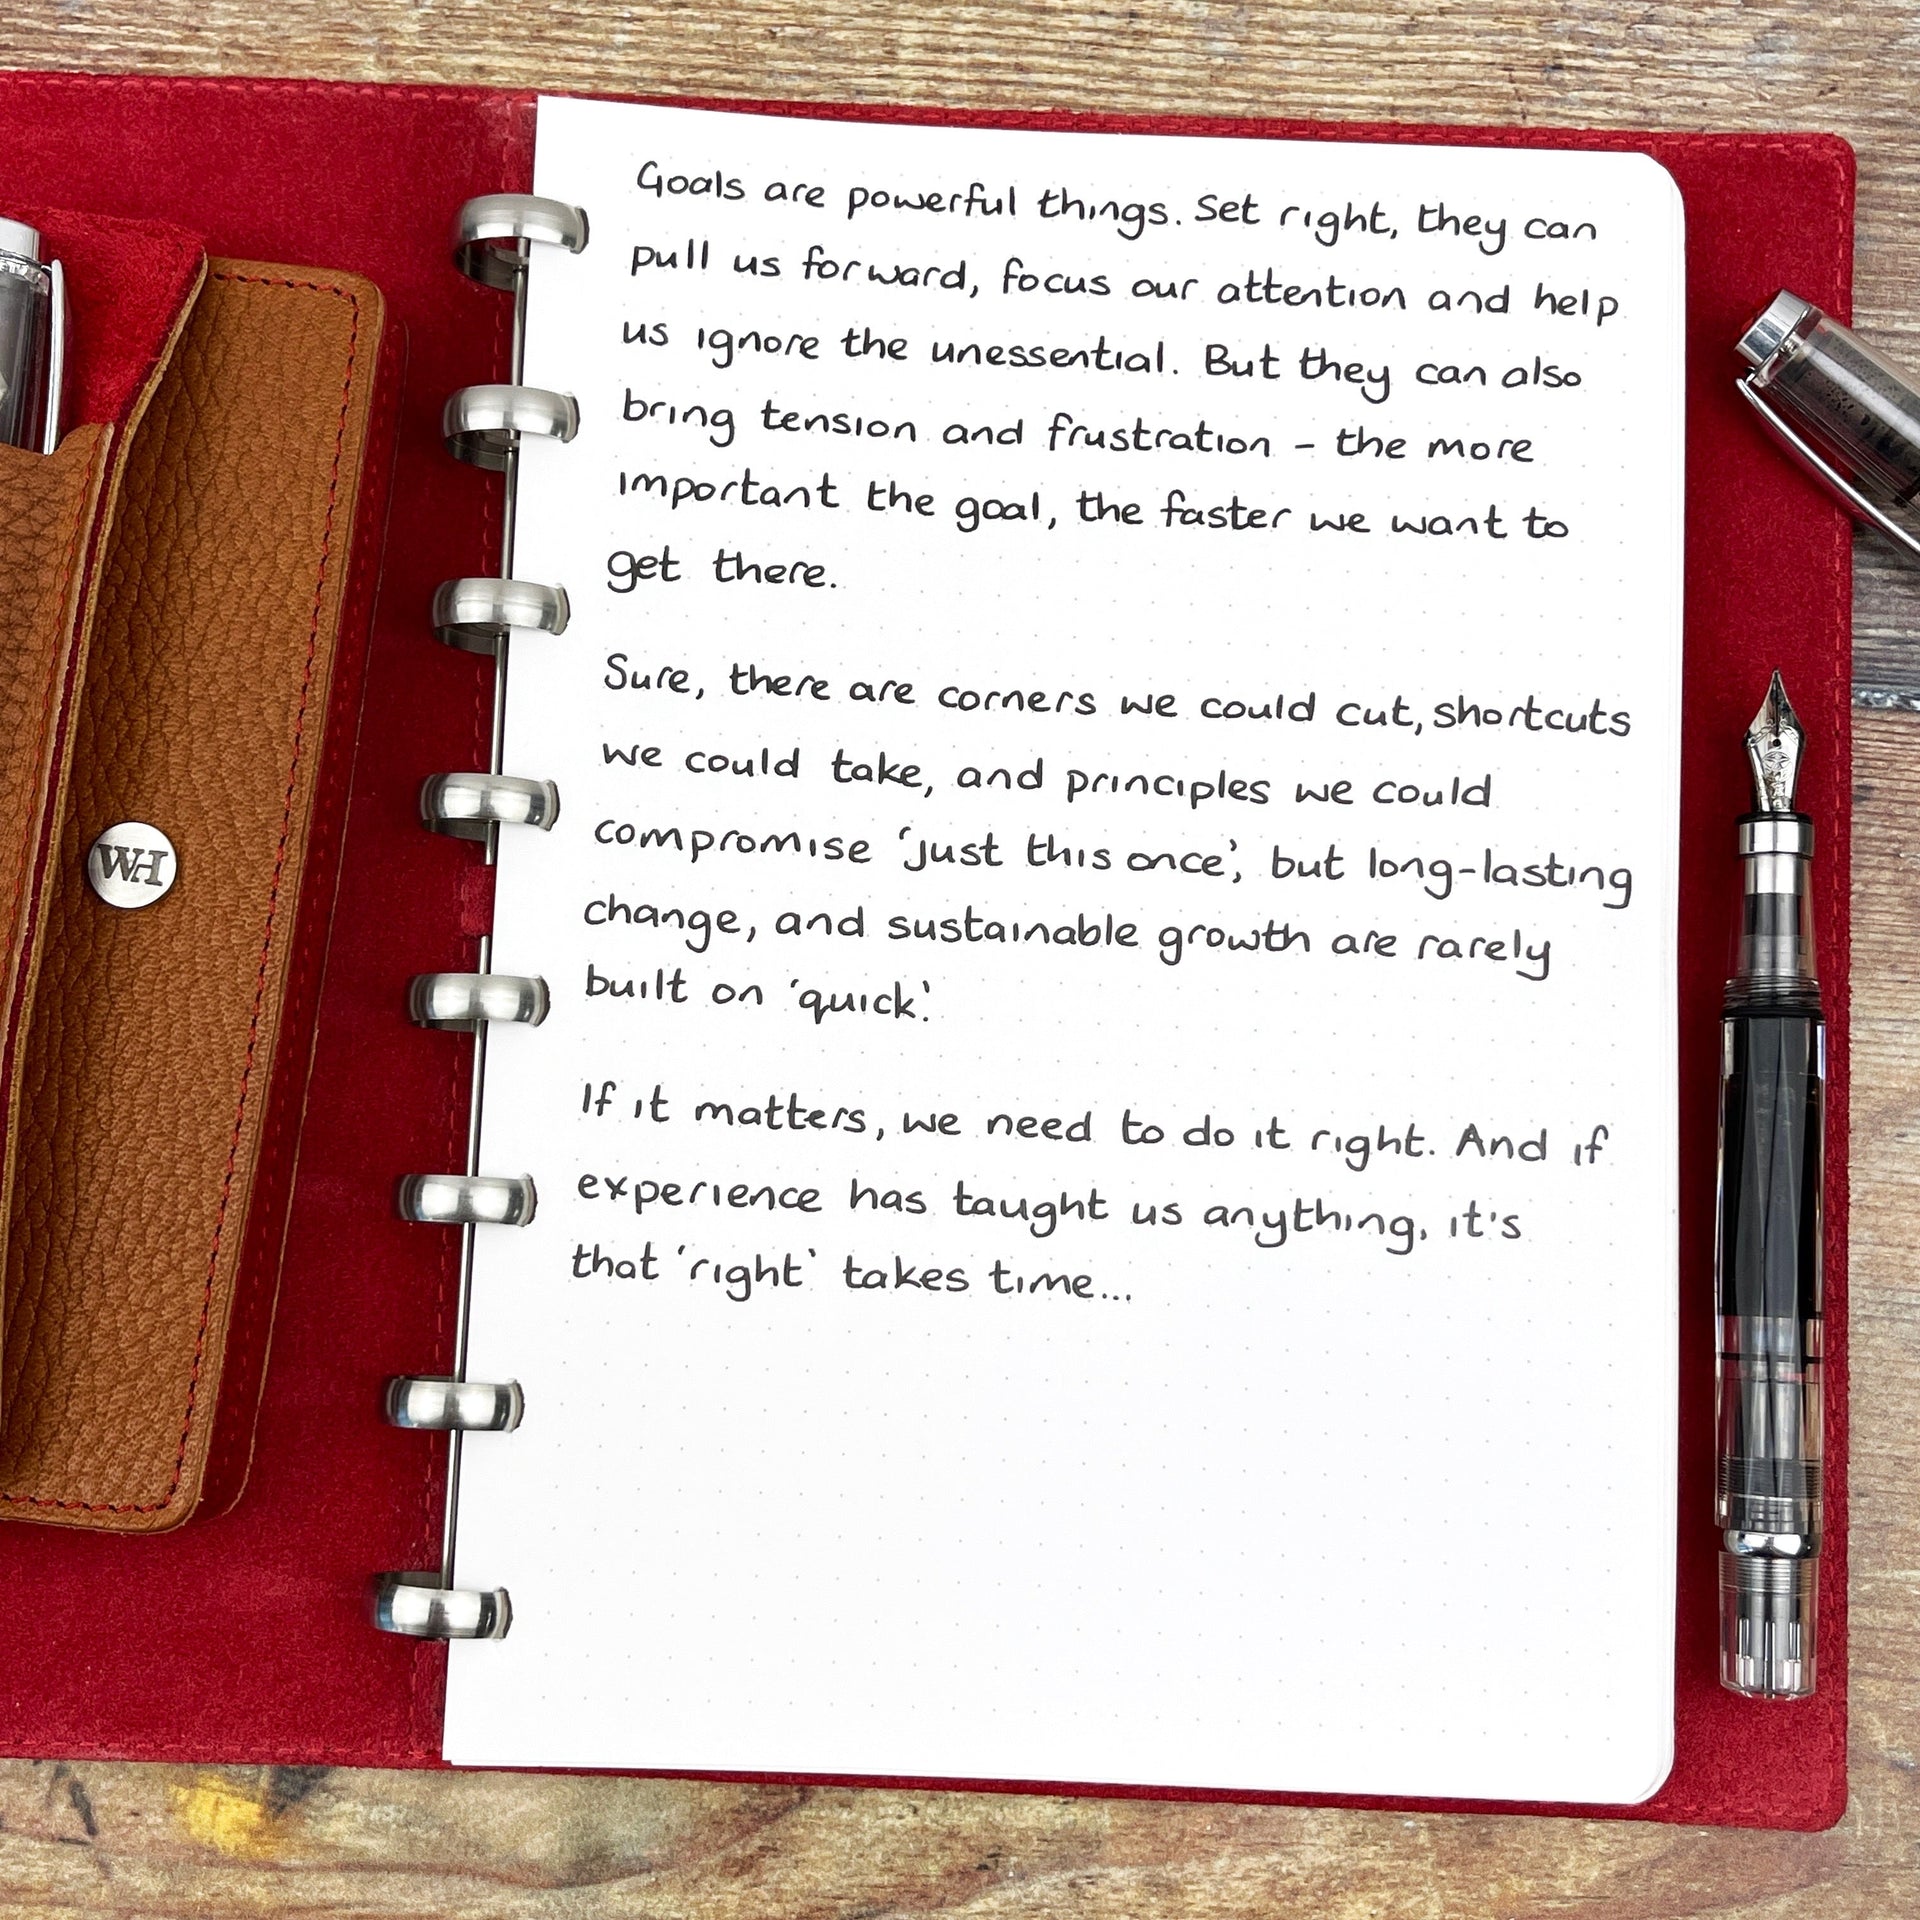 Goals are powerful things. Set right, they can
pull us forward, focus our attention and help
us ignore the unessential. But they can also
bring tension and frustration – the more
important the goal, the faster we want to
get there.
Sure, there are corners we could cut, shortcuts
we could take, and principles we could
compromise ‘just this once’, but long-lasting
change, and sustainable growth are rarely
built on ‘quick’.
If it matters, we need to do it right. And if
experience has taught us anything, it's
that ‘right’ takes time...
WH